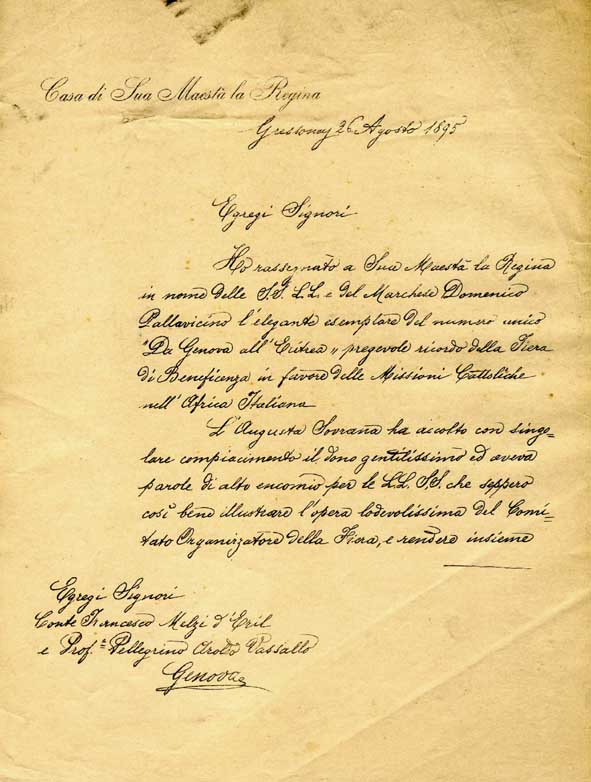 Casa di Sua Maestà la Regina
Gressoney 26 Agosto 1895
Egregi Signori
Ho rassegnato a Sua Maestà la Regina
in nome delle S.S. L.L. e del Marchese Domenico
Pallavicino l'elegante esemplare del numero unico
"Da Genova all'Eritrea" pregevole ricordo della Fiera
di Beneficenza in favore delle Missioni Cattoliche
nell'Africa Italiana
L'Augusta Sovrana ha accolto con singo-
lare compiacimento il dono gentilissimo ed aveva
parole di alto encomio per le L.L. S.S. che seppero
così bene illustrare l'opera lodevolissima del Comi-
tato Organizzatore della Fiera, e rendere insieme
Egregi Signori
Conte Francesco Melzi d'Eril
e Prof. Pellegrino Vassallo
Genova